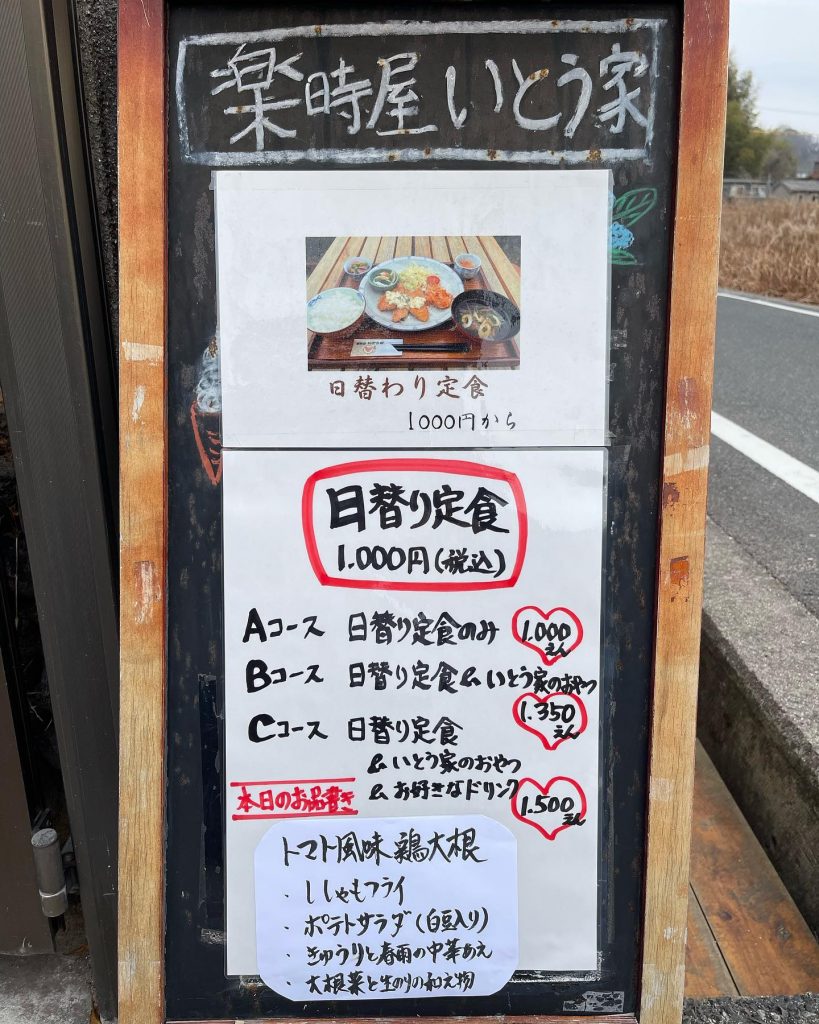 楽時屋いとう家
日替わり定食
1000円から
日替り定食
1.000円(税込)
Aコース 日替り定食のみ 1.000えん
Bコース 日替り定食&いとう家のおやつ
1.350えん
Cコース 日替り定食
&いとう家のおやつ
&お好きなドリンク
1.500えん
本日のお品書き
トマト風味鶏大根
・ししゃもフライ
・ポテトサラダ(白豆入り)
・きゅうりと春雨の中華あえ
・大根菜と生のりの和え物